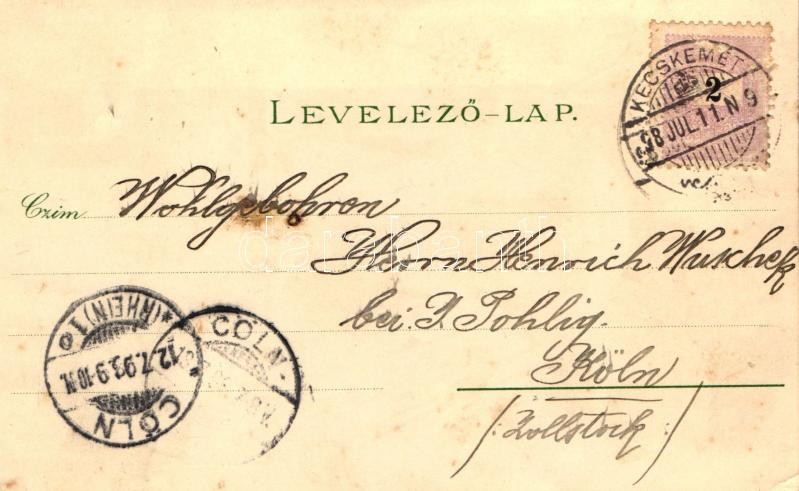 LEVELEZŐ-LAP.
KECSKEMÉT
98 JUL. 11. N 9
2
Czim Wohlgebohren
Herrn Henrich Wuschek
bei J. Pohlig.
Köln
/: Zollstock /
CÖLN
*(RHEIN) 1 o
12.7.98. 9-10 N.
CÖLN-
darabanth